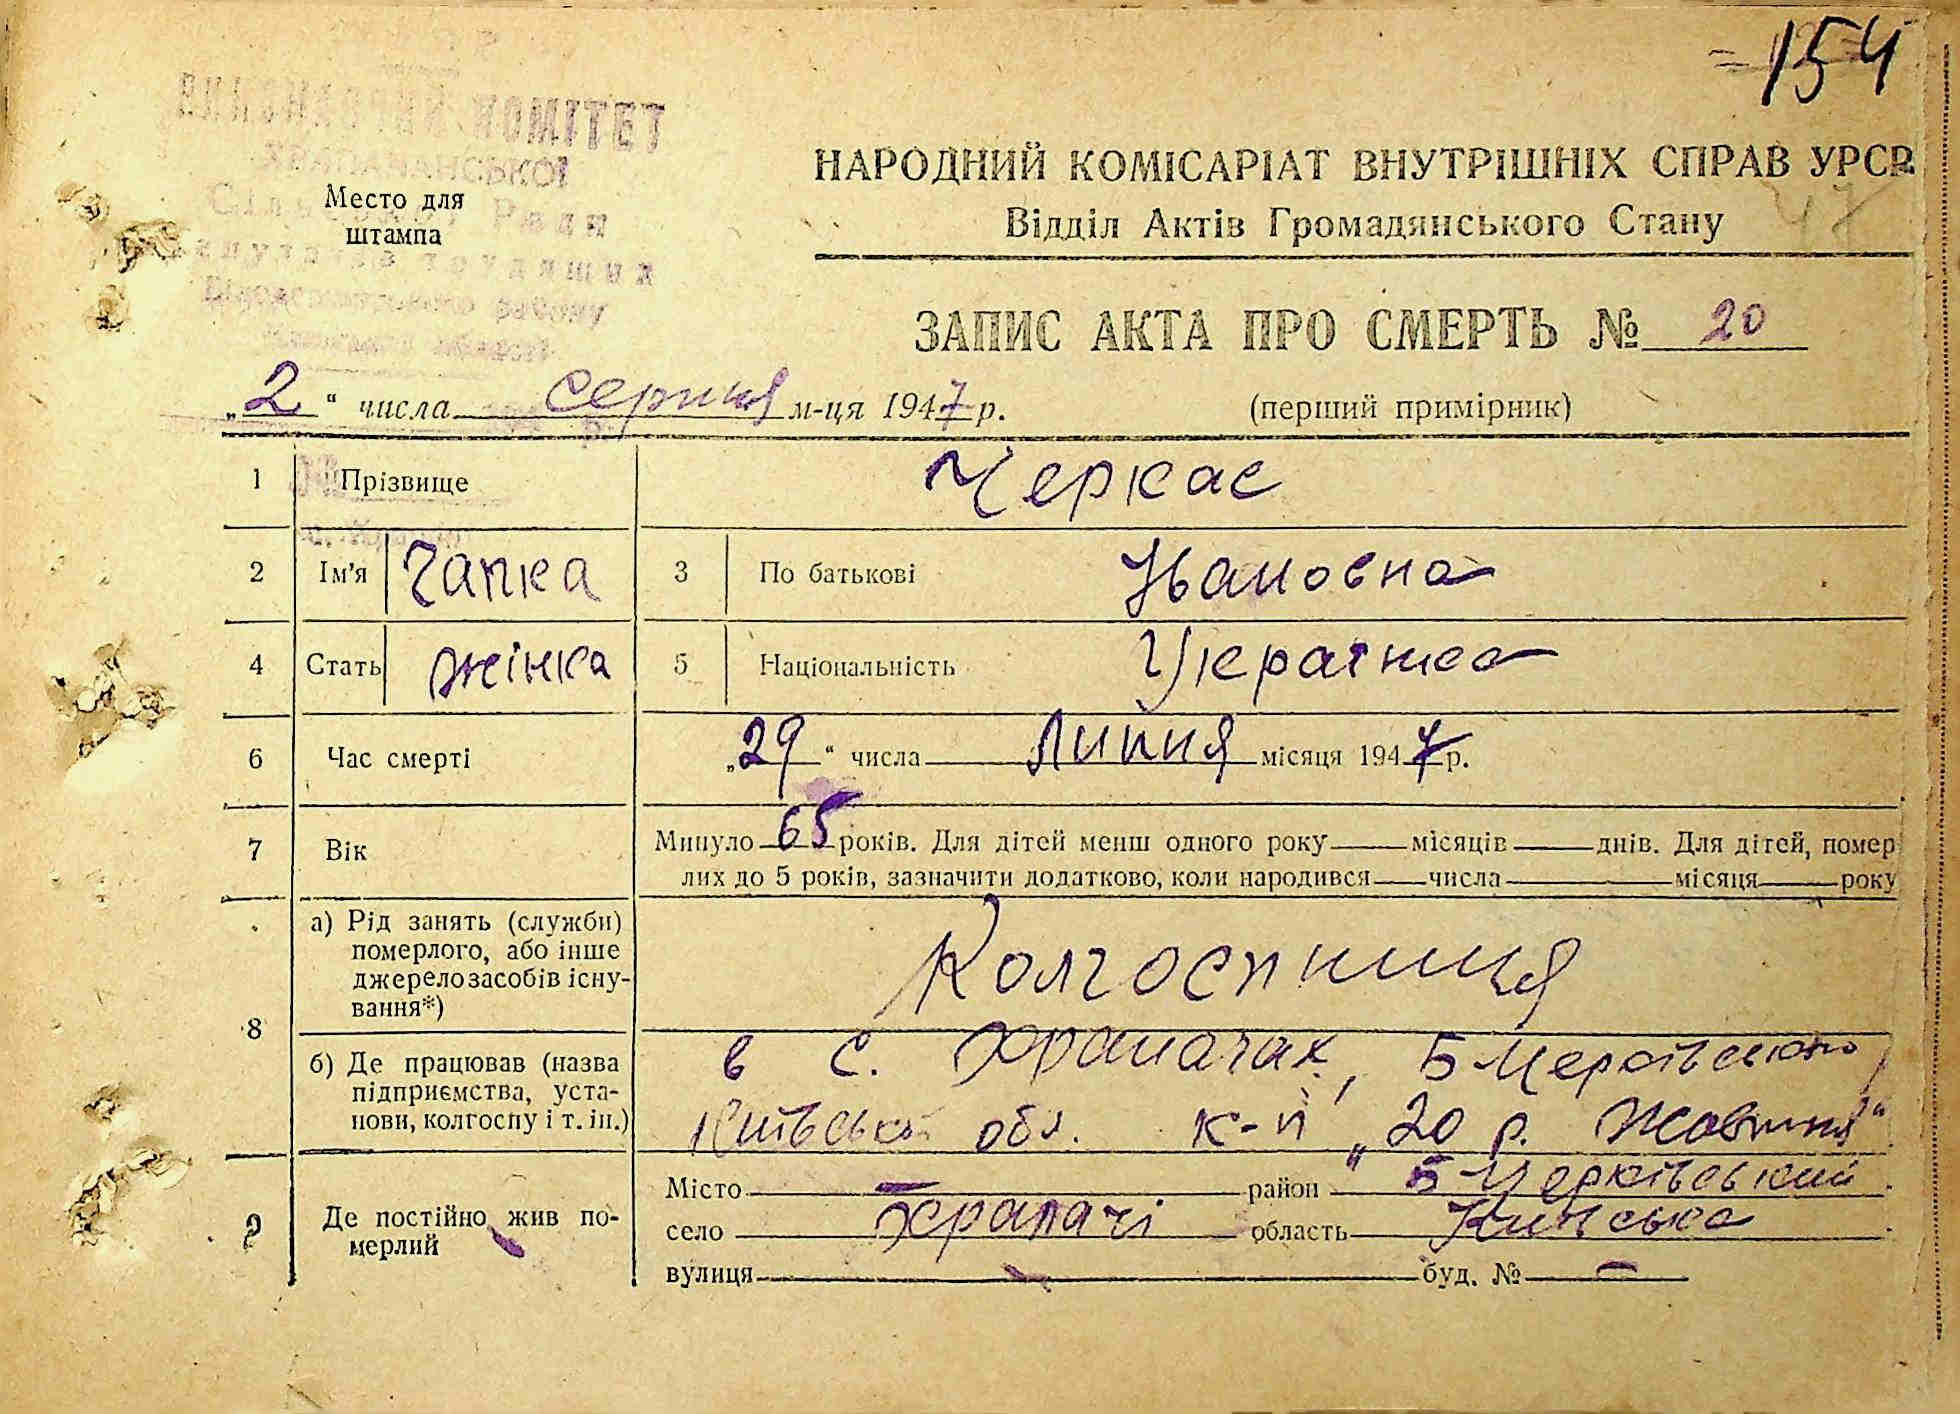 154
47
ВИКОНАВЧИЙ КОМІТЕТ
ХРАПАЧАНСЬКОЇ
Сільської Ради
депутатів трудящих
Білоцерківського району
Київської області
Место для
штампа
НАРОДНИЙ КОМІСАРІАТ ВНУТРІШНІХ СПРАВ УРСР
Відділ Актів Громадянського Стану
ЗАПИС АКТА ПРО СМЕРТЬ № 20
„2“ числа серпня м-ця 1947 р.
(перший примірник)
1 Прізвище Черкас
2 Ім'я Гапка 3 По батькові Івановна
4 Стать жінка 5 Національність Українка
6 Час смерті „29“ числа Липня місяця 1947 р.
7 Вік Минуло 65 років. Для дітей менш одного року місяців днів. Для дітей, помер
лих до 5 років, зазначити додатково, коли народився числа місяця року
8 а) Рід занять (служби)
померлого, або інше
джерело засобів існу-
вання*)
Колгоспниця
б) Де працював (назва
підприємства, уста-
нови, колгоспу і т. ін.)
в с. Храпачах, Б Церківського
Київської обл. к-п „20 р. Жовтня“
9 Де постійно жив по-
мерлий
Місто — район Б-Церківський
село Храпачі область Київська
вулиця — буд. № —